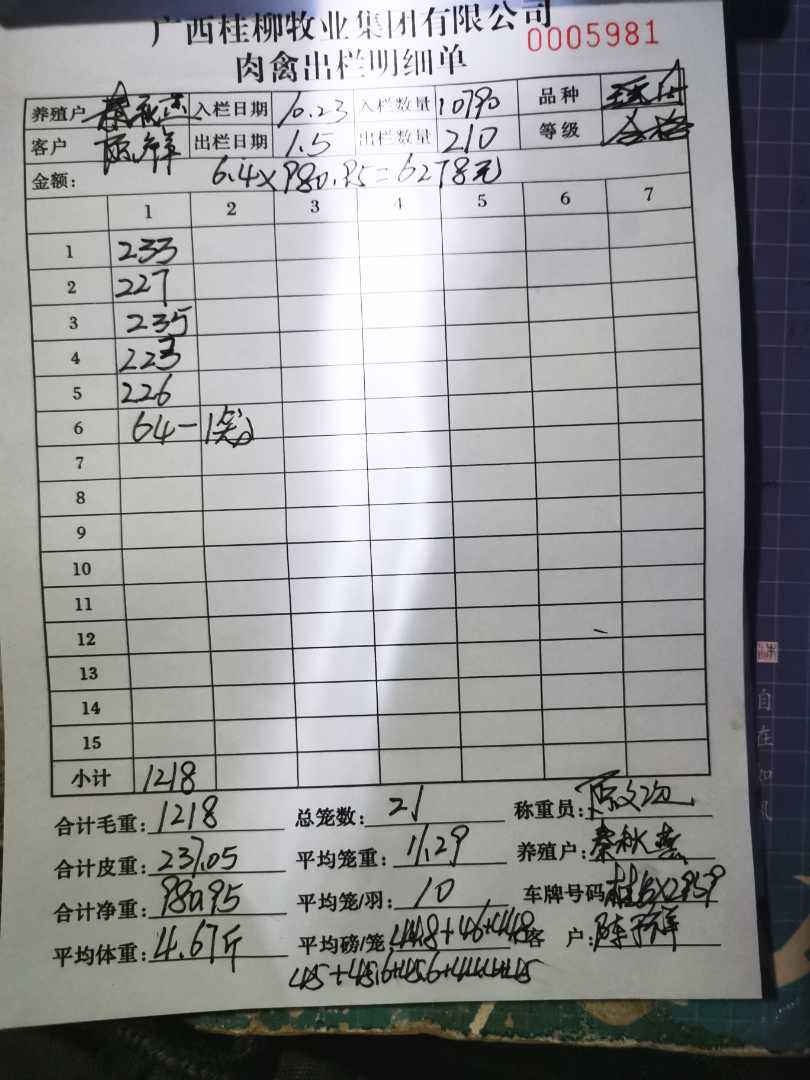 广西桂柳牧业集团有限公司
0005981
肉禽出栏明细单
养殖户 秦秋燕 入栏日期 10.23 入栏数量 10790 品种
客户 陈祥 出栏日期 1.5 出栏数量 210 等级 合格
金额: 6.4×980.95=6278元
1 2 3 4 5 6 7
1 233
2 227
3 235
4 223
5 226
6 64-1
7
8
9
10
11
12
13
14
15
小计 1218
合计毛重: 1218 总笼数: 21 称重员:
合计皮重: 237.05 平均笼重: 11.29 养殖户: 秦秋燕
合计净重: 980.95 平均笼/羽: 10 车牌号码
平均体重: 4.67斤 平均磅/笼 44.8+46+44.8 客 户:
45+45.6+45.6+44.4+45
自在如风